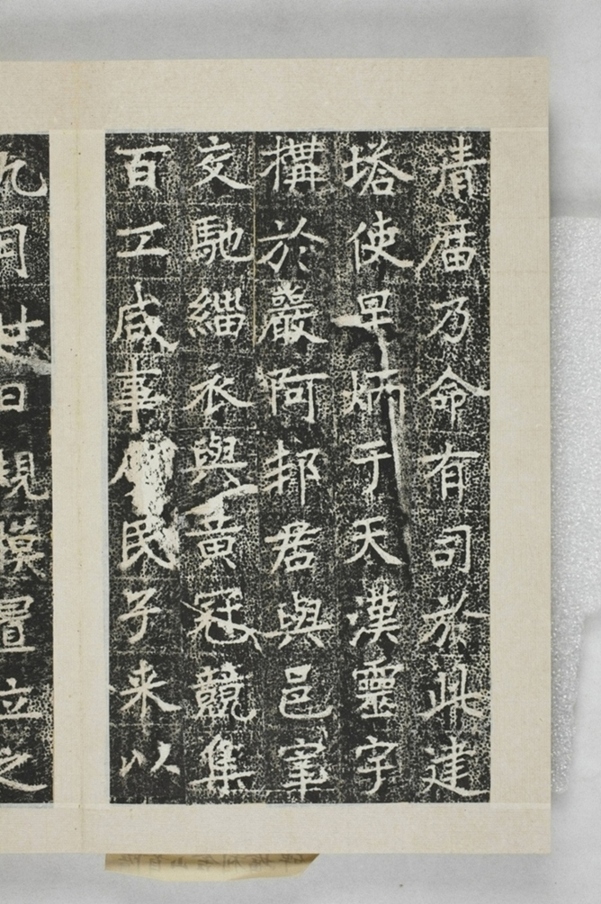 清庿乃命有司於此建
塔使早炳于天漢靈宇
構於巖阿邦君與邑宰
交馳緇衣與黃冠競集
百工咸事民子来以
九月廿日規模置立之